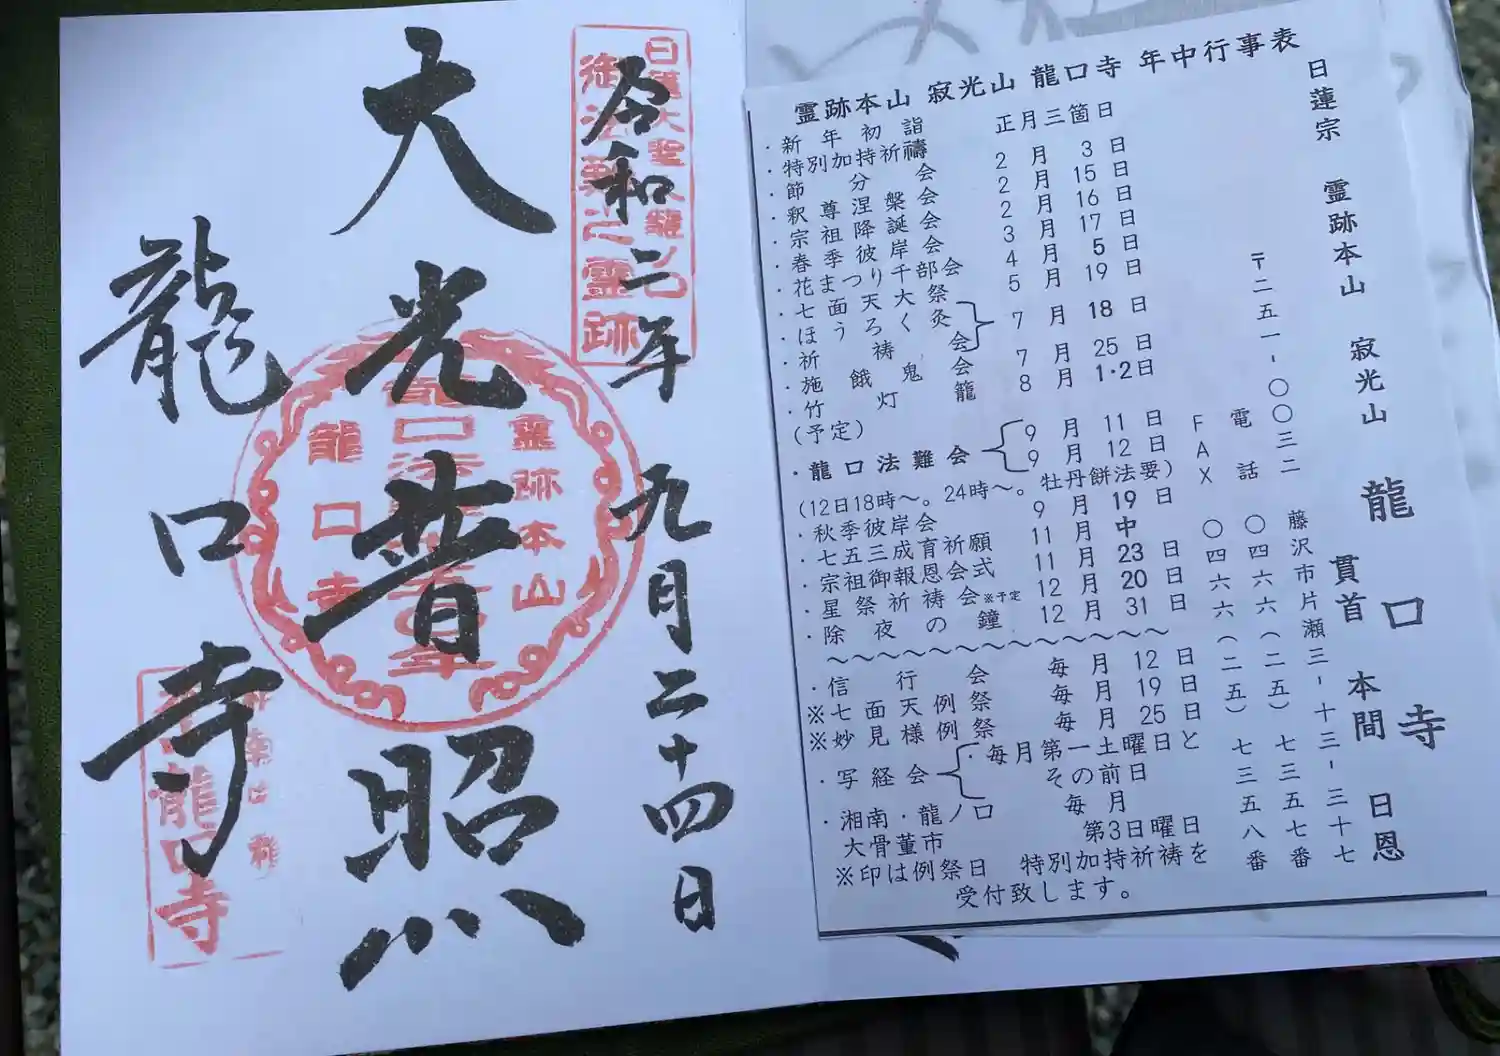 令和二年九月二十四日
大光普照
龍口寺
日蓮大聖人龍ノ口
御法難之霊跡
霊跡本山
龍口寺
龍口寺
霊跡本山 寂光山 龍口寺 年中行事表
・新年初詣 正月三箇日
・特別加持祈禱
・節分会 2月3日
・釈尊涅槃会 2月15日
・宗祖降誕会 2月16日
・春季彼岸会 3月17日
・花まつり千部会 4月5日
・七面天大祭 5月19日
・ほうろく灸
・祈祷会 7月18日
・施餓鬼会 7月25日
・竹灯籠 8月1・2日
(予定)
・龍口法難会 9月11日
9月12日
(12日18時〜。24時〜。牡丹餅法要)
・秋季彼岸会 9月19日
・七五三成育祈願 11月中
・宗祖御報恩会式 11月23日
・星祭祈祷会※予定 12月20日
・除夜の鐘 12月31日
〜〜〜〜〜〜〜〜〜〜〜〜〜
・信行会 毎月12日
※七面天例祭 毎月19日
※妙見様例祭 毎月25日
・写経会 ・毎月第一土曜日と
その前日
・湘南・龍ノ口 毎月
大骨董市 第3日曜日
※印は例祭日 特別加持祈祷を
受付致します。
日蓮宗 霊跡本山 寂光山 龍口寺
貫首 本間日恩
〒二五一-〇〇三二
藤沢市片瀬三-十三-三十七
電話 〇四六六(二五)七三五七番
FAX 〇四六六(二五)七三五八番